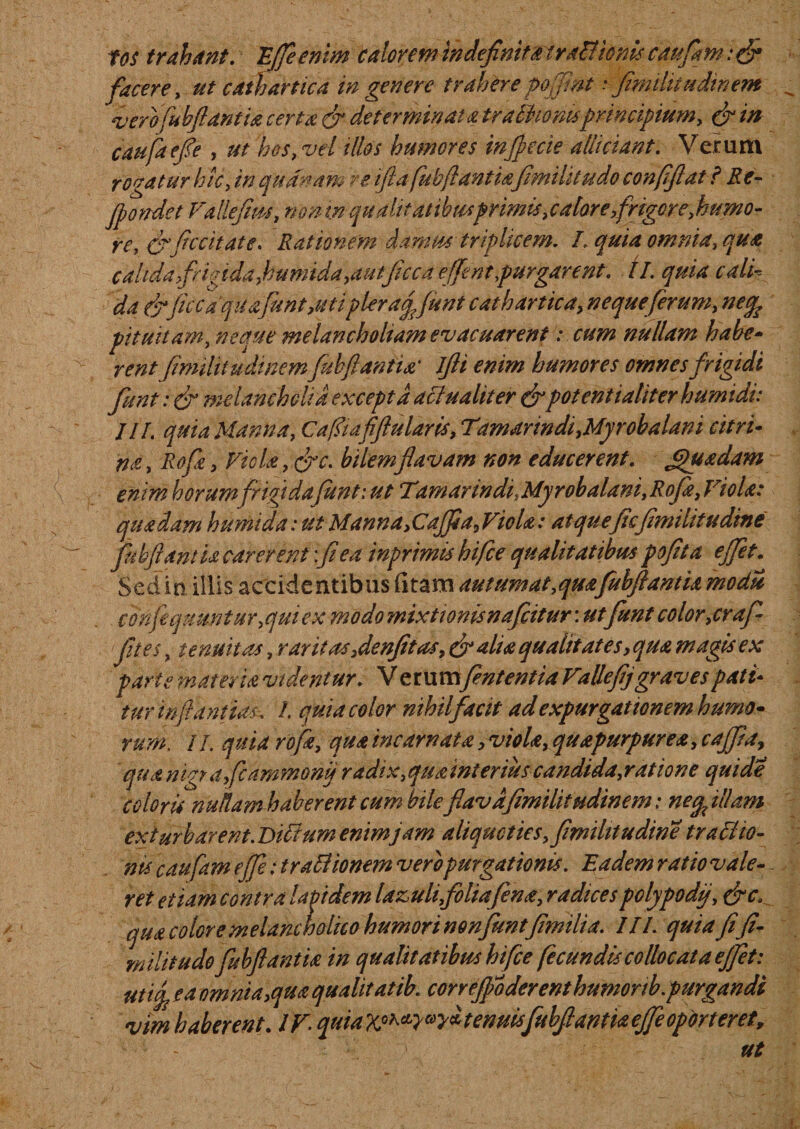 tos trahant. Esse enim calorem indefinitæ tractionis causam: &
facere, ut cathartica in genere trahere possint: similitudinem
verò substantiæ certæ & determinatæ tractionis principium, & in
causa esse, ut hos, vel illos humores in specie alliciant. Verum
rogatur hîc, in quánam re ista substantiæ similitudo consistat? Re-
spondet Vallesius, non in qualitatibus primis, calore, frigore, humo-
re, & siccitate. Rationem damus triplicem. I. quia omnia, quæ
calida, frigida, humida, aut sicca essent, purgarent. II. quia cali-
da & sicca quæ sunt, uti pleraq; sunt cathartica, neque serum, neq;
pituitam, neque melancholiam evacuarent: cum nullam habe-
rent similitudinem substantiæ. Isti enim humores omnes frigidi
sunt: & melancholiâ exceptâ actualiter & potentialiter humidi:
III. quia Manna, Cassia fistularis, Tamarindi, Myrobalani citri-
næ, Rosæ, Violæ, &c. bilem flavam non educerent. Quædam
enim horum frigida sunt: ut Tamarindi, Myrobalani, Rosæ, Violæ:
quædam humida: ut Manna, Cassia, Violæ: atque sic similitudine
substantiæ carerent: si ea inprimis hisce qualitatibus posita esset.
Sed in illis accidentibus sitam autumat, quæ substantiæ modū
consequuntur, qui ex modo mixtionis nascitur: ut sunt color, cras-
sities, tenuitas, raritas, densitas, & aliæ qualitates, quæ magis ex
parte materiæ videntur. Verum sententia Vallesij graves pati-
tur instantias. I. quia color nihil facit ad expurgationem humo-
rum. II. quia rosæ, quæ incarnatæ, violæ, quæ purpureæ, cassia,
quæ nigra, scammonij radix, quæ interiùs candida, ratione quidē
coloris nullam haberent cum bile flavâ similitudinem: neq; illam
exturbarent. Dictum enim jam aliquoties, similitudinē tractio-
nis causam esse: tractionem verò purgationis. Eadem ratio vale-
ret etiam contra lapidem lazuli, folia senæ, radices polypodij, &c.
quæ colore melancholico humori non sunt similia. III. quia si si-
militudo substantiæ in qualitatibus hisce secundis collocata esset:
utiq; ea omnia, quæ qualitatib. correspōderent humorib. purgandi
vim haberent. IV. quia χολαγωγὰ tenuis substantiæ esse oporteret,
ut